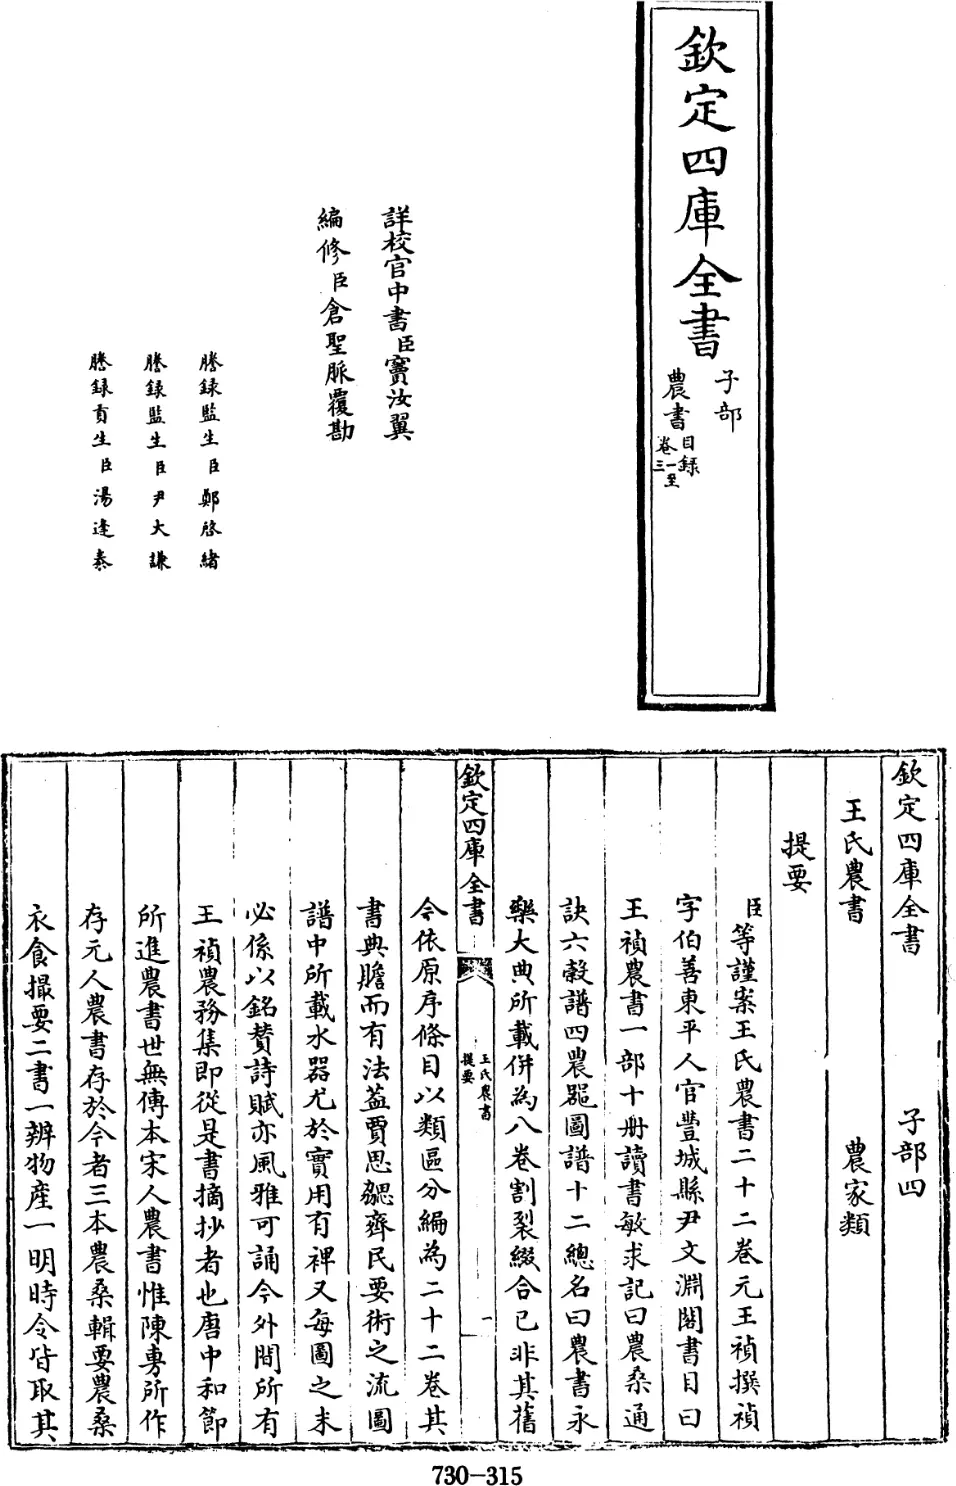 欽定四庫全書
子部
農書
目錄
卷一至
三
詳校官中書臣竇汝翼
編修臣倉聖脈覆勘
謄録監生臣鄭啓緒
謄録監生臣尹大謙
謄録貢生臣湯逢泰
欽定四庫全書 子部四
王氏農書 農家類
提要
臣等謹案王氏農書二十二卷元王禎撰禎
字伯善東平人官豐城縣尹文淵閣書目曰
王禎農書一部十冊讀書敏求記曰農桑通
訣六穀譜四農器圖譜十二總名曰農書永
樂大典所載併為八卷割裂綴合已非其舊
欽定四庫全書
王氏農書
提要
一
今依原序條目以類區分編為二十二卷其
書典贍而有法葢賈思勰齊民要術之流圖
譜中所載水器尤於實用有裨又每圖之末
必係以銘贊詩賦亦風雅可誦今外間所有
王禎農務集即從是書摘抄者也唐中和節
所進農書世無傳本宋人農書惟陳旉所作
存元人農書存於今者三本農桑輯要農桑
衣食撮要二書一辨物產一明時令皆取其
730-315